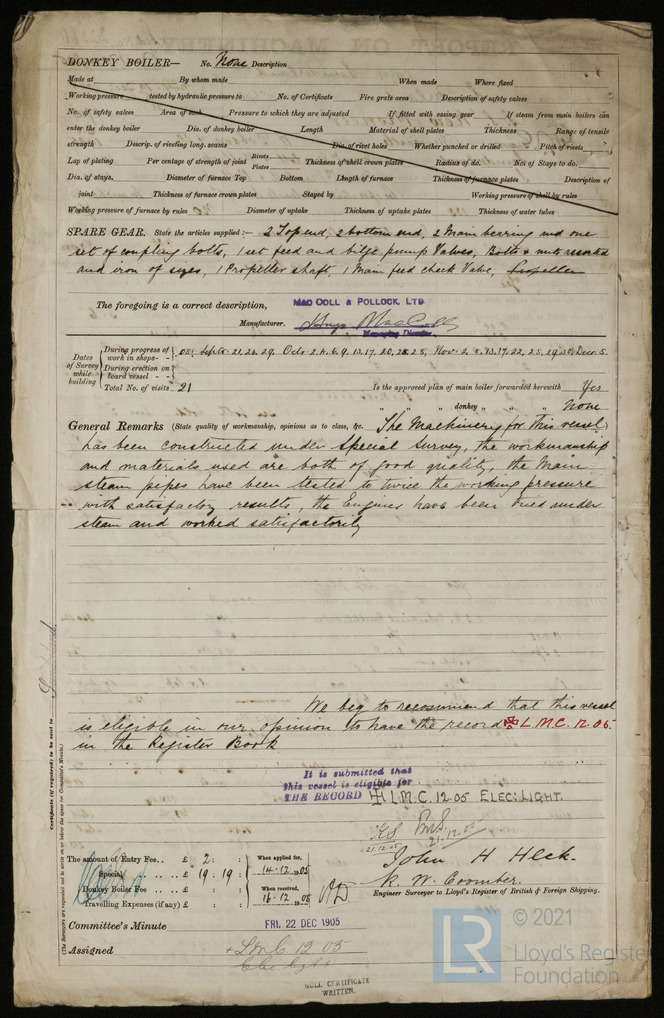 DONKEY BOILER— No. None Description
Made at By whom made When made Where fixed
Working pressure tested by hydraulic pressure to No. of Certificate Fire grate area Description of safety valves
No. of safety valves Area of each Pressure to which they are adjusted If fitted with easing gear If steam from main boilers can
enter the donkey boiler Dia. of donkey boiler Length Material of shell plates Thickness Range of tensile
strength Descrip. of riveting long. seams Dia. of rivet holes Whether punched or drilled Pitch of rivets
Lap of plating Per centage of strength of joint Rivets Plates Thickness of shell crown plates Radius of do. No. of Stays to do.
Dia. of stays. Diameter of furnace Top Bottom Length of furnace Thickness of furnace plates Description of
joint Thickness of furnace crown plates Stayed by Working pressure of shell by rules
Working pressure of furnace by rules Diameter of uptake Thickness of uptake plates Thickness of water tubes
SPARE GEAR. State the articles supplied:— 2 Top end, 2 bottom end, 2 Main bearing and one
set of coupling bolts, 1 set feed and bilge pump Valves, Bolts & nuts assorted
and iron of sizes, 1 Propeller shaft, 1 Main feed check Valve, Propeller
The foregoing is a correct description,
MAC COLL & POLLOCK, LTD
Manufacturer. Hugo MacColl
Managing Director
Dates of Survey while building
During progress of work in shops - - 05: Septr 21, 26, 29. Octr 2, 4, 6, 9, 13, 17, 20, 23, 25, Nov. 2, 8, 13, 17, 22, 25, 29, 30, Decr. 5.
During erection on board vessel - -
Total No. of visits 21 Is the approved plan of main boiler forwarded herewith Yes
" " " donkey " " " None
General Remarks (State quality of workmanship, opinions as to class, &c. The Machinery for this vessel
has been constructed under Special Survey, the workmanship
and materials used are both of good quality, the Main
steam pipes have been tested to twice the working pressure
with satisfactory results, the Engines have been tried under
steam and worked satisfactorily
Certificate (if required) to be sent to
(The Surveyors are requested not to write on or below the space for Committee's Minute.)
We beg to recommend that this vessel
is eligible in our opinion to have the record ✠ L.M.C. 12.05.
in the Register Book
It is submitted that
this vessel is eligible for
THE RECORD ✠ L.M.C. 12.05 ELEC: LIGHT.
21.12.05
21.12.05
The amount of Entry Fee.. £ 2 : : When applied for,
Special .. .. £ 19 : 19 : 14.12.1905
Donkey Boiler Fee .. .. £ : : When received,
Travelling Expenses (if any) £ : : 16.12.1905
John H Heck.
K. W. Coomber.
Engineer Surveyor to Lloyd's Register of British & Foreign Shipping.
Committee's Minute FRI. 22 DEC 1905
Assigned + LMC 12 05
Elec Light
HULL CERTIFICATE
WRITTEN.
LR
© 2021
Lloyd's Register
Foundation